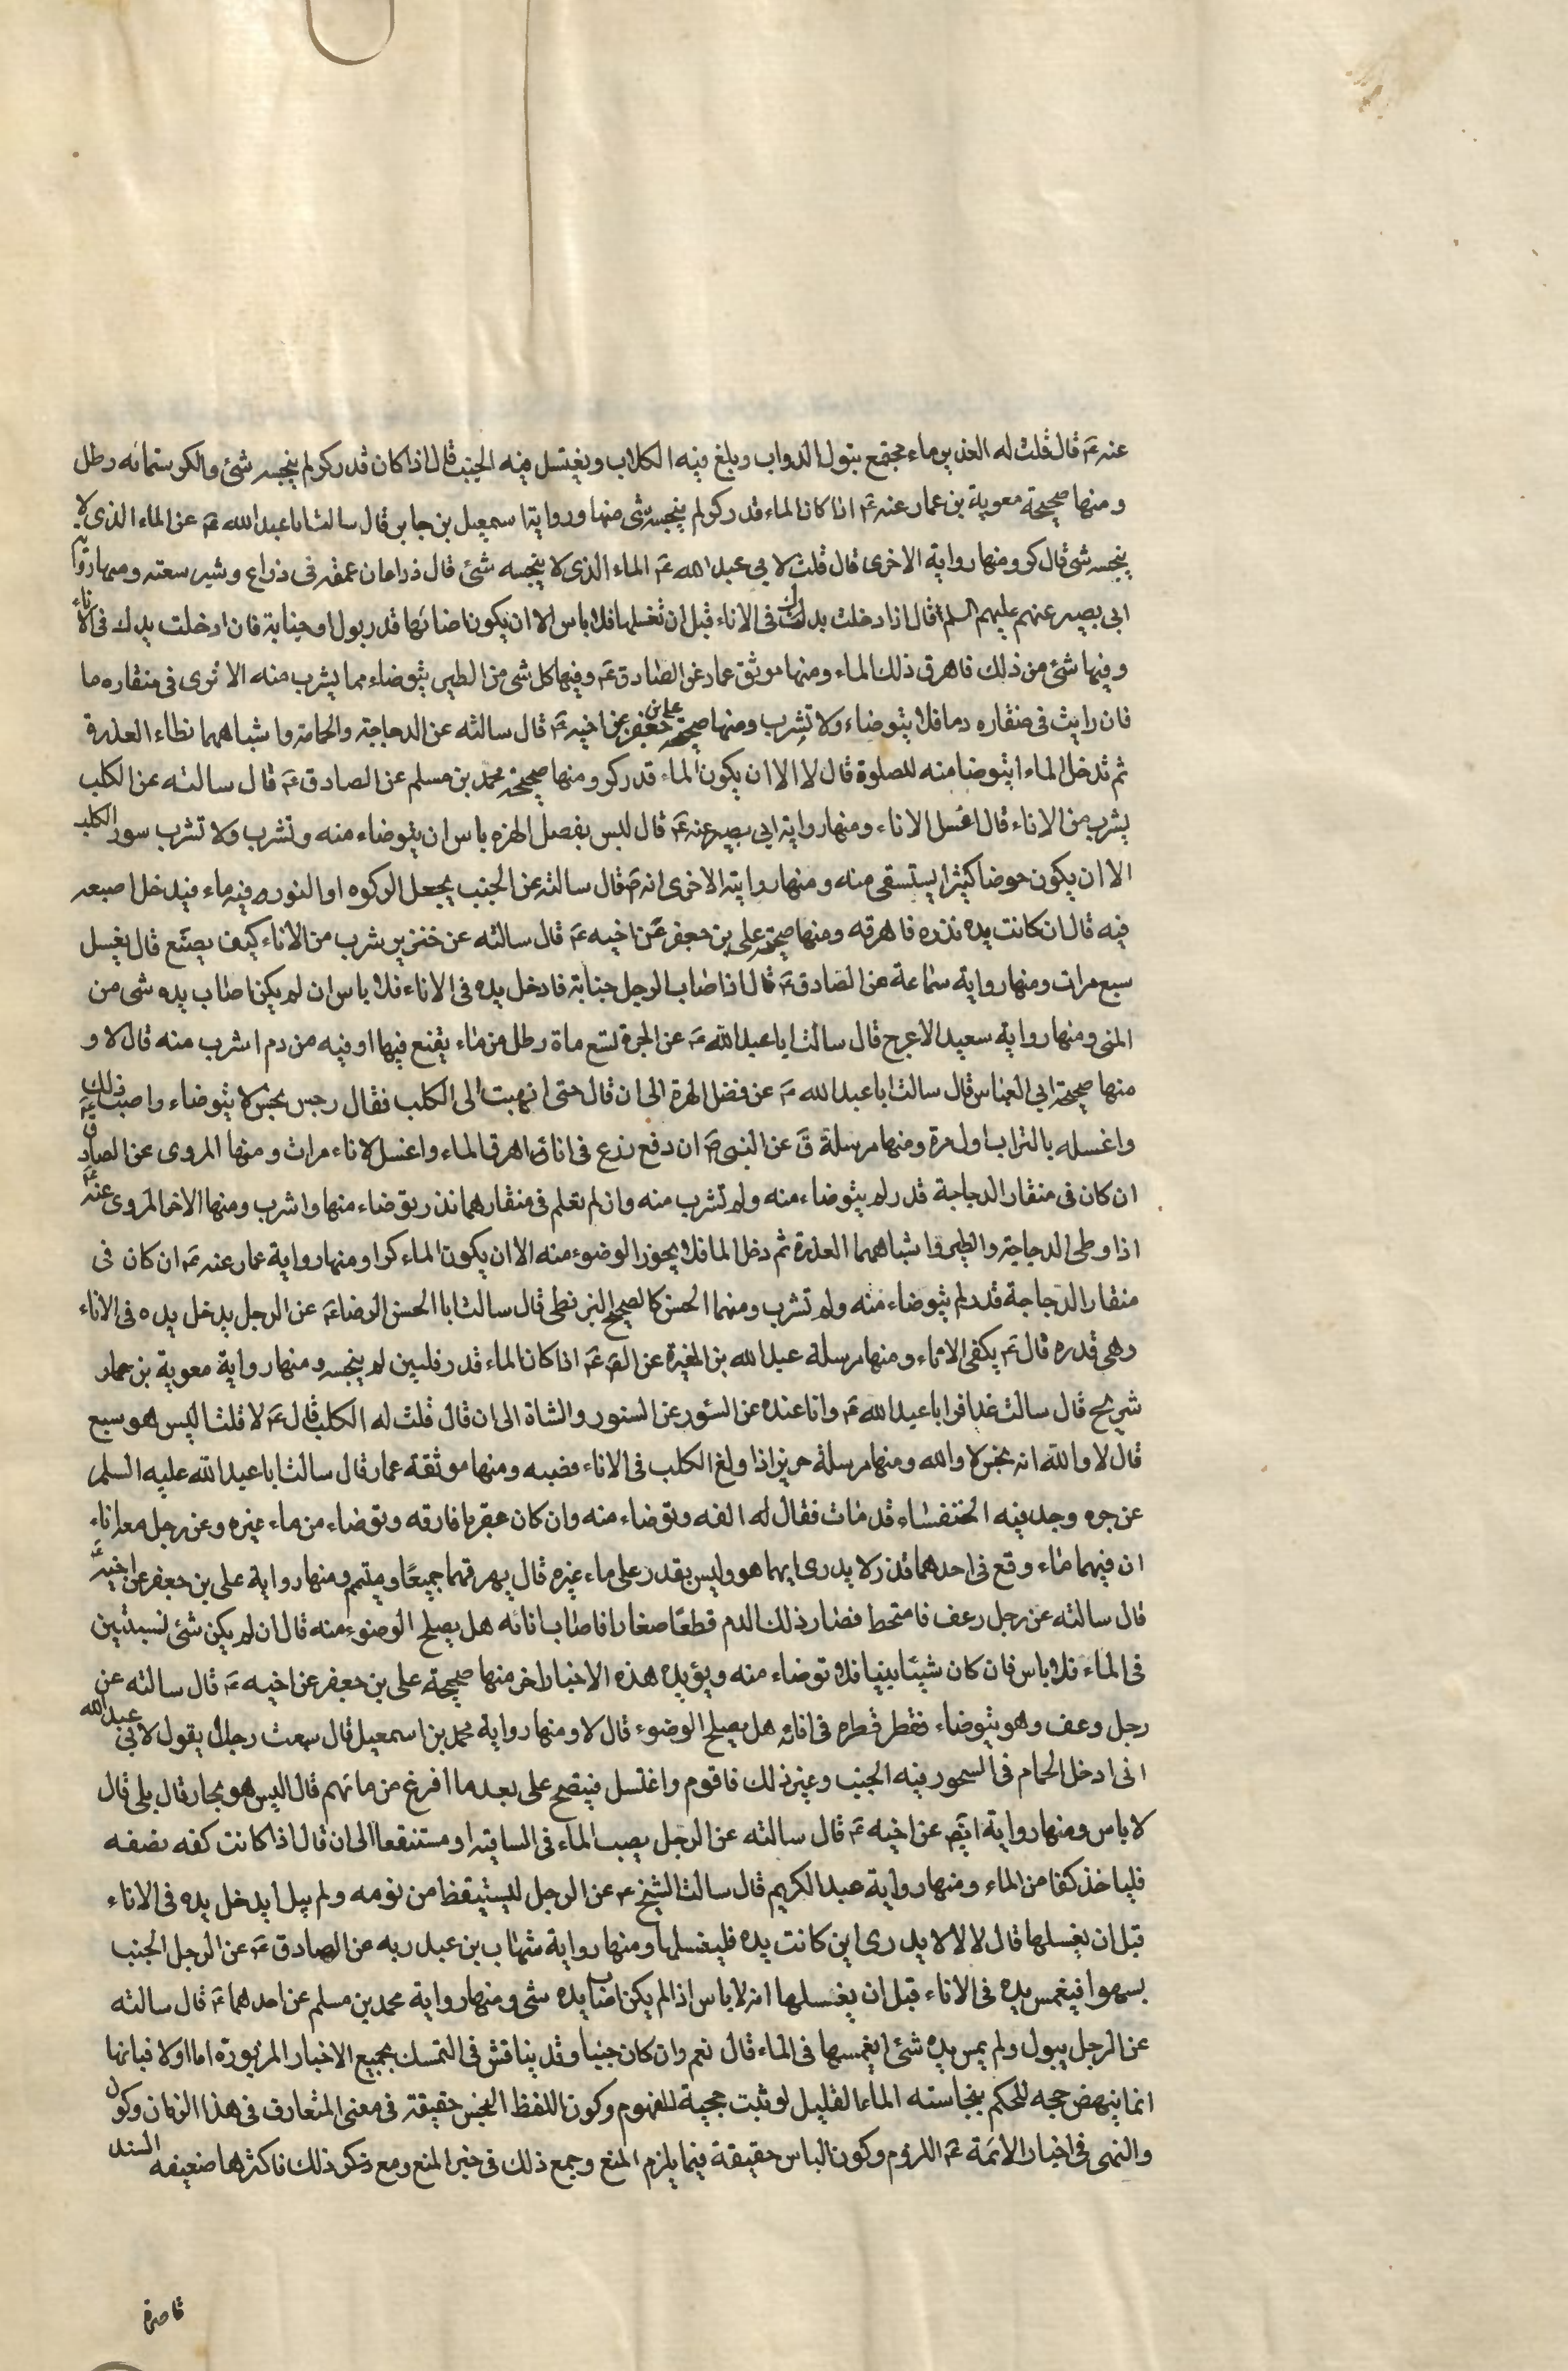 عنه ع قال قلت له الغدير ماء مجتمع تبول الدواب ويلغ فيه الكلاب ويغتسل فيه الجنب قال اذا كان قدر كر لم ينجسه شئ والكر ستمائه رطل
ومنها صحيحة معوية بن عمار عنه ع اذا كان الماء قدر كر لم ينجسه شئ منها ورواية اسمعيل بن جابر قال سالت ابا عبد الله ع عن الماء الذى لا
ينجسه شئ قال كر ومنها رواية الاخرى قال قلت لابى عبد الله ع الماء الذى لا ينجسه شئ قال ذراعان عمقه فى ذراع وشبر سعته ومنها رواية
ابى بصير عنهم عليهم السلم قال اذا دخلت يدك فى الاناء قبل ان تغسلها فلا باس الا ان يكون اصابها قدر بول او جنابة فان ادخلت يدك فى الاناء
وفيها شئ من ذلك فاهرق ذلك الماء ومنها موثق عمار عن الصادق ع وفيها كل شئ من الطير يتوضاء مما يشرب منه الا ترى فى منقاره دما
فان رايت فى منقاره دما فلا يتوضاء ولا تشرب ومنها صحيحة على بن جعفر عن اخيه ع قال سالته عن الدجاجة والحمامة واشباههما تطاء العذرة
ثم تدخل الماء ايتوضا منه للصلوة قال لا الا ان يكون الماء قدر كر ومنها صحيحة محمد بن مسلم عن الصادق ع قال سالته عن الكلب
يشرب من الاناء قال اغسل الاناء ومنها رواية ابى بصير عنه ع قال ليس بفضل الهره باس ان يتوضاء منه وتشرب ولا تشرب سور الكلب
الا ان يكون حوضا كثيرا يستسقى منه ومنها روايته الاخرى انه ع قال سالته عن الجنب يجعل الركوه او التوره فيه ماء فيدخل اصبعه
فيه قال ان كانت يده قذره فاهرقه ومنها صحيحة على بن جعفر عن اخيه ع قال سالته عن خنزير شرب من الاناء كيف يصنع قال يغسل
سبع مرات ومنها رواية سماعة عن الصادق ع قال اذا اصاب الرجل جنابة فادخل يده فى الاناء فلا باس ان لم يكن اصاب يده شئ من
المنى ومنها رواية سعيد الاعرج قال سالت ابا عبد الله ع عن الجرة لتسع ماة رطل من ماء يقنع فيها اوقيه من دم اشرب منه قال لا و
منها صحيحة ابى العباس قال سالت ابا عبد الله ع عن فضل الهرة الى ان قال حتى انهيت الى الكلب فقال رجس نجس لا يتوضاء واصبب ذلك
واغسله بالتراب اول مرة ومنها مرسلة ق عن النبى ص ان وقع وزغ فى اناء اهرق الماء واغسل الاناء مرات ومنها المروى عن الصادق ع
ان كان فى منقار الدجاجة قذر لم يتوضاء منه ولم تشرب منه وان لم تعلم فى منقارهما قذر يتوضاء منها واشرب ومنها الاخر المروى عنه ع
اذا وطى الدجاجة والطير واشباههما العذرة ثم دخل الما فلا يجوز الوضوء منه الا ان يكون الماء كرا ومنها رواية عمار عنه ع ان كان فى
منقار الدجاجة قذر لم يتوضاء منه ولم تشرب ومنها الحسن كالصحيح البزنطى قال سالت ابا الحسن الرضا ع عن الرجل يدخل يده فى الاناء
وهى قذره قال ع يكفى الاماء ومنها مرسلة عبد الله بن المغيرة عن الص ع اذا كان الماء قدر قلتين لم ينجسه ومنها رواية معوية بن عمار
شريح قال سالت عذافر ابا عبد الله ع وانا عنده عن السئور عن السنور والشاة الى ان قال قلت له الكلب قال ع لا قلت اليس هو سبع
قال لا والله انه نجس لا والله ومنها مرسلة حريز اذا ولغ الكلب فى الاناء فصبه ومنها موثقة عمار قال سالت ابا عبد الله عليه السلم
عن جره وجد فيه الخنفساء قد مات فقال له القه وتوضاء منه وان كان عقربا فارقه وتوضاء من ماء غيره وعن رجل معه اناء
ان فيهما ماء وقع فى احدهما قذر لا يدرى ايهما هو وليس يقدر على ماء غيره قال يهرقهما جميعًا ويتيمم ومنها رواية على بن جعفر عن اخيه ع
قال سالته عن رجل رعف فامتخط فصار ذلك الدم قطعًا صغارا فاصاب انائه هل يصلح الوضوء منه قال ان لم يكن شئ يستبين
فى الماء فلا باس فان كان شيئًا بينا فلا توضاء منه ويؤيده هذه الاخبار اخر منها صحيحة على بن جعفر عن اخيه ع قال سالته عن
رجل رعف وهو يتوضاء فقطر قطره فى انائه هل يصلح الوضوء قال لا ومنها رواية محمد بن اسمعيل قال سمعت رجلا يقول لابى عبد الله
انى ادخل الحمام فى السحور فيه الجنب وغير ذلك فاقوم واغتسل فينتضح على بعد ما افرغ من مائهم قال اليس هو بجار قال بلى قال
لا باس ومنها رواية ايضا عن اخيه ع قال سالته عن الرجل يصب الماء فى الساقية او مستنقعا الى ان قال اذا كانت كفه نضفه
فلياخذ كفا من الماء ومنها رواية عبد الكريم قال سالت الشيخ ع عن الرجل ليستيقظ من نومه ولم يبل ايدخل يده فى الاناء
قبل ان يغسلها قال لا لانه لا يدرى اين كانت يده فليغسلها ومنها رواية شهاب بن عبد ربه عن الصادق ع عن الرجل الجنب
يسهوا فيغمس يده فى الاناء قبل ان يغسلها انه لا باس اذا لم يكن اصاب يده شئ ومنها رواية محمد بن مسلم عن احدهما ع قال سالته
عن الرجل يبول ولم يمس يده شئ ايغمسها فى الماء قال نعم وان كان جنبا وقد يناقش فى التمسك بجميع الاخبار المزبورة اما اولا فبانها
انما ينهض حجه للحكم بنجاسته الماء القليل لو ثبت حجية المفهوم وكون اللفظ النجس حقيقة فى معنى المتعارف فى هذا الزمان وكون
والنهى فى اخبار الائمة ع اللزوم وكون الباس حقيقة فيما يلزم المنع وجمع ذلك فى خبر المنع ومع ذكر ذلك فاكثرها ضعيفه السند
قاصرة